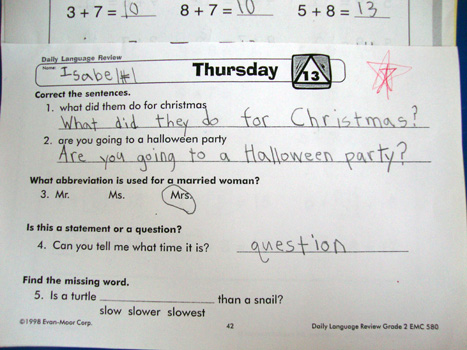 3 + 7 = 10 8 + 7 = 10 5 + 8 = 13
Daily Language Review
Name: Isabel #1 Thursday 13
Correct the sentences.
1. what did them do for christmas
What did they do for Christmas?
2. are you going to a halloween party
Are you going to a Halloween party?
What abbreviation is used for a married woman?
3. Mr. Ms. Mrs.
Is this a statement or a question?
4. Can you tell me what time it is? question
Find the missing word.
5. Is a turtle ____________ than a snail?
slow slower slowest
©1998 Evan-Moor Corp. 42 Daily Language Review Grade 2 EMC 580